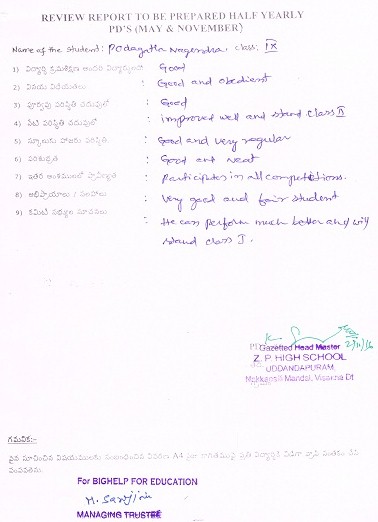 REVIEW REPORT TO BE PREPARED HALF YEARLY
PD'S (MAY & NOVEMBER)
Name of the Student: Podagatla Nagendra, class: IX
1) విద్యార్థి క్రమశిక్షణ : Good
2) విషయ విధేయతలు : Good and obedient
3) పూర్వపు పరిస్థితి చదువులో : Good
4) నేటి పరిస్థితి చదువులో : improved well and stand class II
5) స్కూలుకు హాజరు పరిస్థితి : Good and very regular
6) పరిశుభ్రత : Good and neat
7) ఇతర అంశములలో : Participates in all competitions.
8) అభిప్రాయాలు / సలహాలు : Very good and fair student
9) కమిటీ సభ్యుల సూచనలు : He can perform much better and will
stand class I.
Gazetted Head Master
Z. P. HIGH SCHOOL
UDDANDAPURAM,
Mandal, Visakha Dt
గమనిక:-
పైన సూచించిన విషయములకు సంబంధించిన వివరణ A4 సైజు
For BIGHELP FOR EDUCATION
MANAGING TRUSTEE